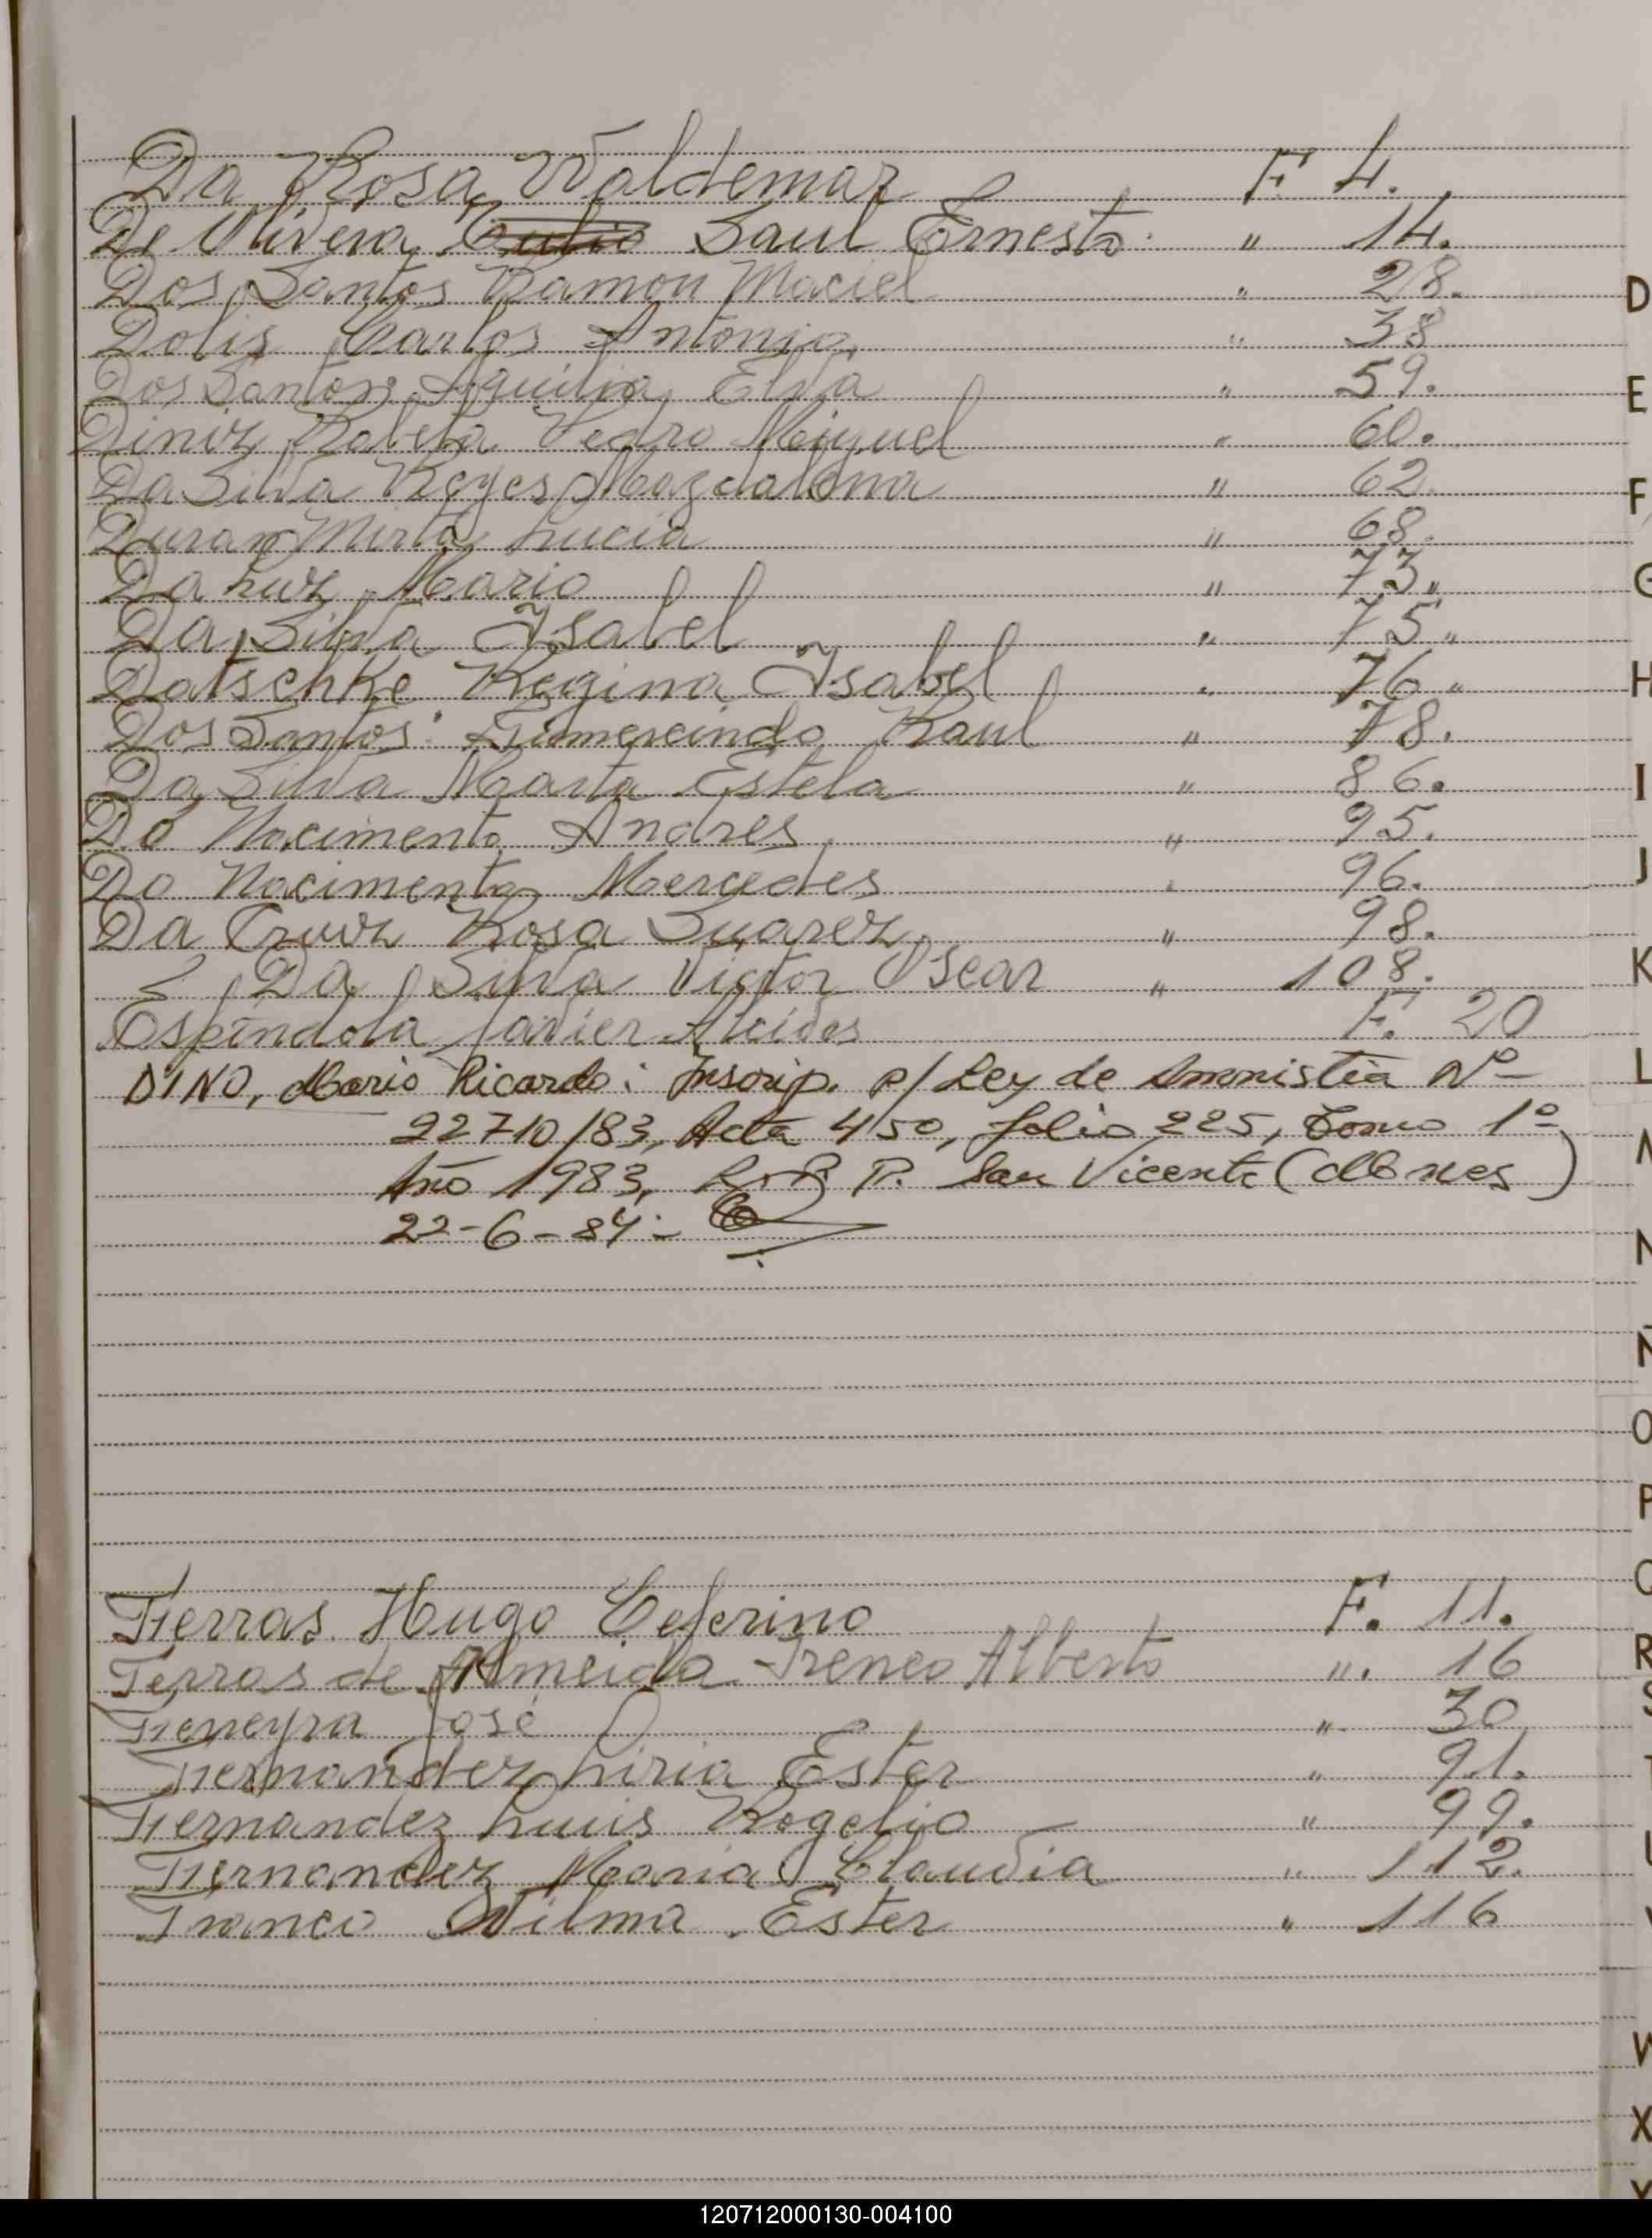 Da Rosa Waldemar F 4.
De Olivera Julio Saul Ernesto " 14.
Dos Santos Ramon Maciel " 28.
Dolis Carlos Antonio " 38
Dos Santos Aguilia Elva " 59.
Diniz Pedro Miguel " 60.
Da Silva Reyes Magdalena " 62.
Duran Mirta Lucia " 68.
Da Luz Mario " 73 "
Da Silva Isabel " 75 "
Datschke Regina Isabel " 76 "
Dos Santos Gumercindo Raul " 78.
Da Silva Marta Estela " 86.
Do Nacimento Andres " 95.
Do Nacimento Mercedes " 96.
Da Cruz Rosa Suarez " 98.
Da Silva Victor Oscar " 108.
Espíndola Javier Alcides F. 20
DINO, Mario Ricardo: Inscrip. p/ Ley de Amnistia Nº
22710/83, Acta 450, folio 225, Tomo 1º
Año 1983, R. P. San Vicente (Mnes)
22-6-84.-
Fierras Hugo Ceferino F. 11.
Ferras de Almeida Ireneo Alberto ". 16
Ferreyra José " 30
Fernandez Liria Ester " 91.
Fernandez Luis Rogelio " 99.
Fernandez Maria Claudia " 112.
Franco Wilma Ester " 116
D
E
F
G
H
I
J
K
L
N
Ñ
O
P
R
S
W
X
120712000130-004100